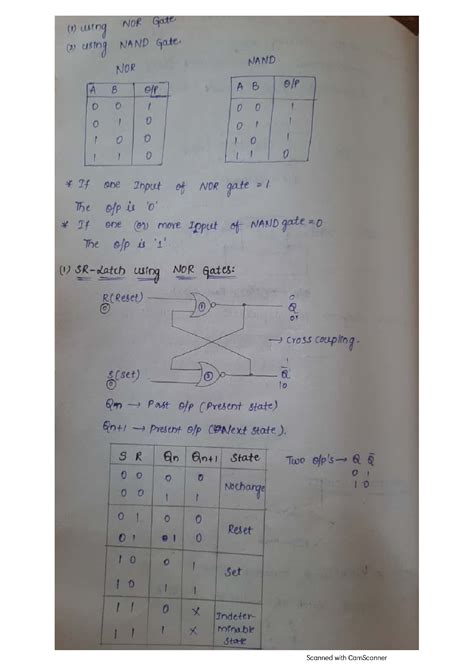 (1) using NOR Gate
(2) using NAND Gate
NOR
A B O/P
0 0 1
0 1 0
1 0 0
1 1 0
NAND
A B O/P
0 0 1
0 1 1
1 0 1
1 1 0
* If one Input of NOR gate = 1
The O/p is '0'
* If one (or) more Input of NAND gate = 0
The O/p is '1'
(1) SR-Latch using NOR Gates:
R (Reset)
0
1
Q
→ Cross coupling.
S (Set)
0
2
Q̄
1 0
Qn → Past O/p (Present State)
Qn+1 → Present O/p (Next State).
S R Qn Qn+1 State
0 0 0 0
0 0 1 1
Nochange
0 1 0 0
0 1 1 0
Reset
1 0 0 1
1 0 1 1
Set
1 1 0 x
1 1 1 x
Indeter-
minable
State
Two O/p's → Q Q̄
0 1
1 0
Scanned with CamScanner